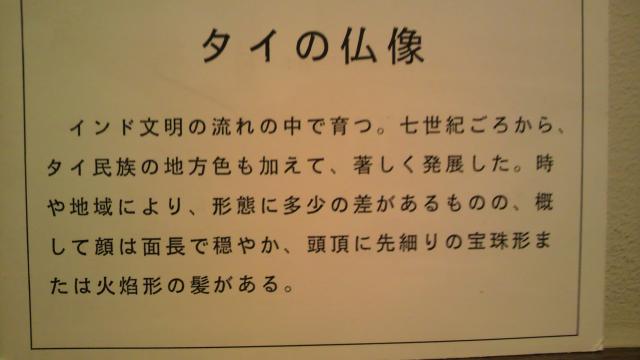 タイの仏像
インド文明の流れの中で育つ。七世紀ごろから、
タイ民族の地方色も加えて、著しく発展した。時
や地域により、形態に多少の差があるものの、概
して顔は面長で穏やか、頭頂に先細りの宝珠形ま
たは火焰形の髪がある。